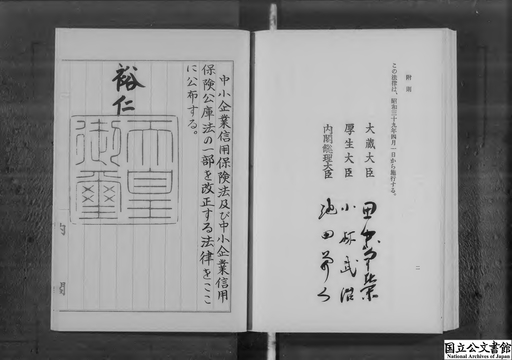 附則
この法律は、昭和三十九年四月一日から施行する。
大蔵大臣 田中角栄
厚生大臣 小林武治
内閣総理大臣 池田勇人
二
中小企業信用保険法及び中小企業信用
保険公庫法の一部を改正する法律をここ
に公布する。
裕仁
天皇
御璽
国立公文書館
National Archives of Japan